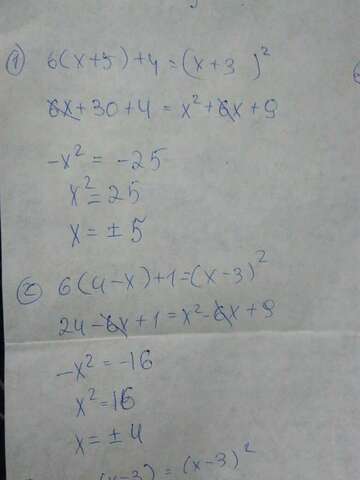 ① 6(x+5)+4=(x+3)²
6x+30+4=x²+6x+9
-x²=-25
x²=25
x=±5
② 6(4-x)+1=(x-3)²
24-6x+1=x²-6x+9
-x²=-16
x²=16
x=±4
(x-3)=(x-3)²